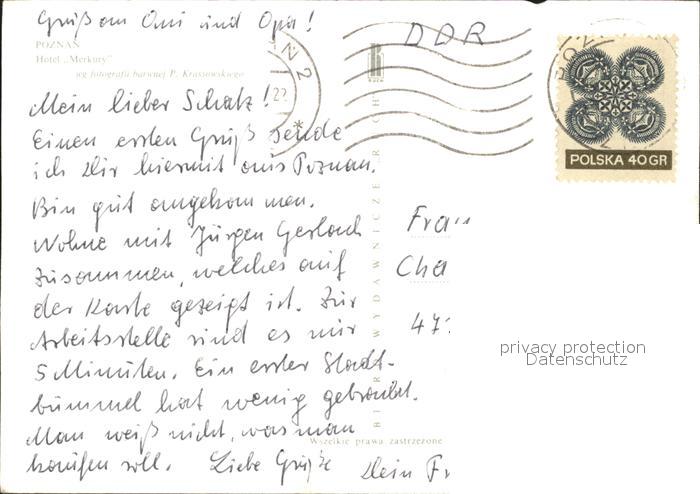 Gruß an Omi und Opa!
POZNAŃ
Hotel „Merkury”
wg fotografii barwnej P. Krassowskiego
Mein lieber Schatz!
Einen ersten Gruß sende
ich Dir hiermit aus Poznan.
Bin gut angekommen.
Wohne mit Jürgen Gerlach
zusammen, welches auf
der Karte gezeigt ist. Zur
Arbeitsstelle sind es nur
5 Minuten. Ein erster Stadt-
bummel hat wenig gebracht.
Man weiß nicht, was man
kaufen soll. Liebe Grüße
Dein Fr
DDR
POLSKA 40 GR
Frau
Cha
47
Wszelkie prawa zastrzeżone
privacy protection
Datenschutz